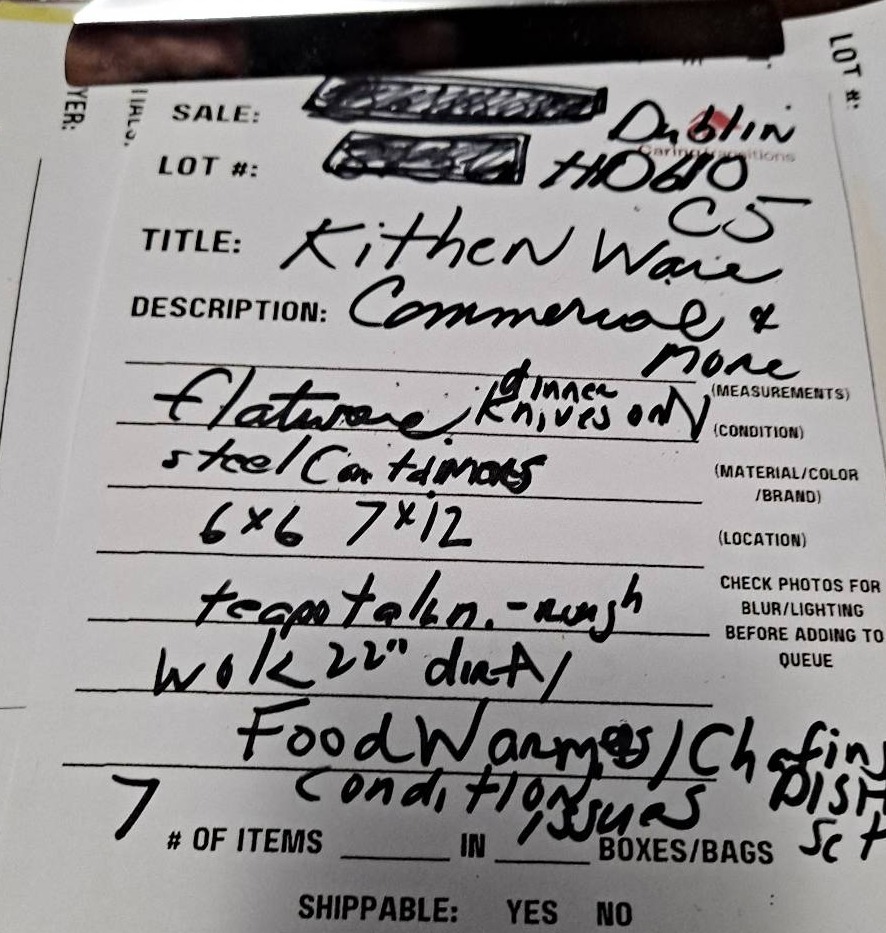 LOT #:
YER:
SALE: Dublin
Caring Transitions
LOT #: HO610
C5
TITLE: Kithen Ware
DESCRIPTION: Commercial &
More
(MEASUREMENTS)
flatware, dinner knives only
(CONDITION)
steel Containors
(MATERIAL/COLOR
/BRAND)
6x6 7x12
(LOCATION)
CHECK PHOTOS FOR
teapot alum. - rough
BLUR/LIGHTING
BEFORE ADDING TO
QUEUE
Wok 22" dirty
Food Warmers/Chafing
DISH
Set
Condition
issues
7 # OF ITEMS ____ IN ____ BOXES/BAGS
SHIPPABLE: YES NO